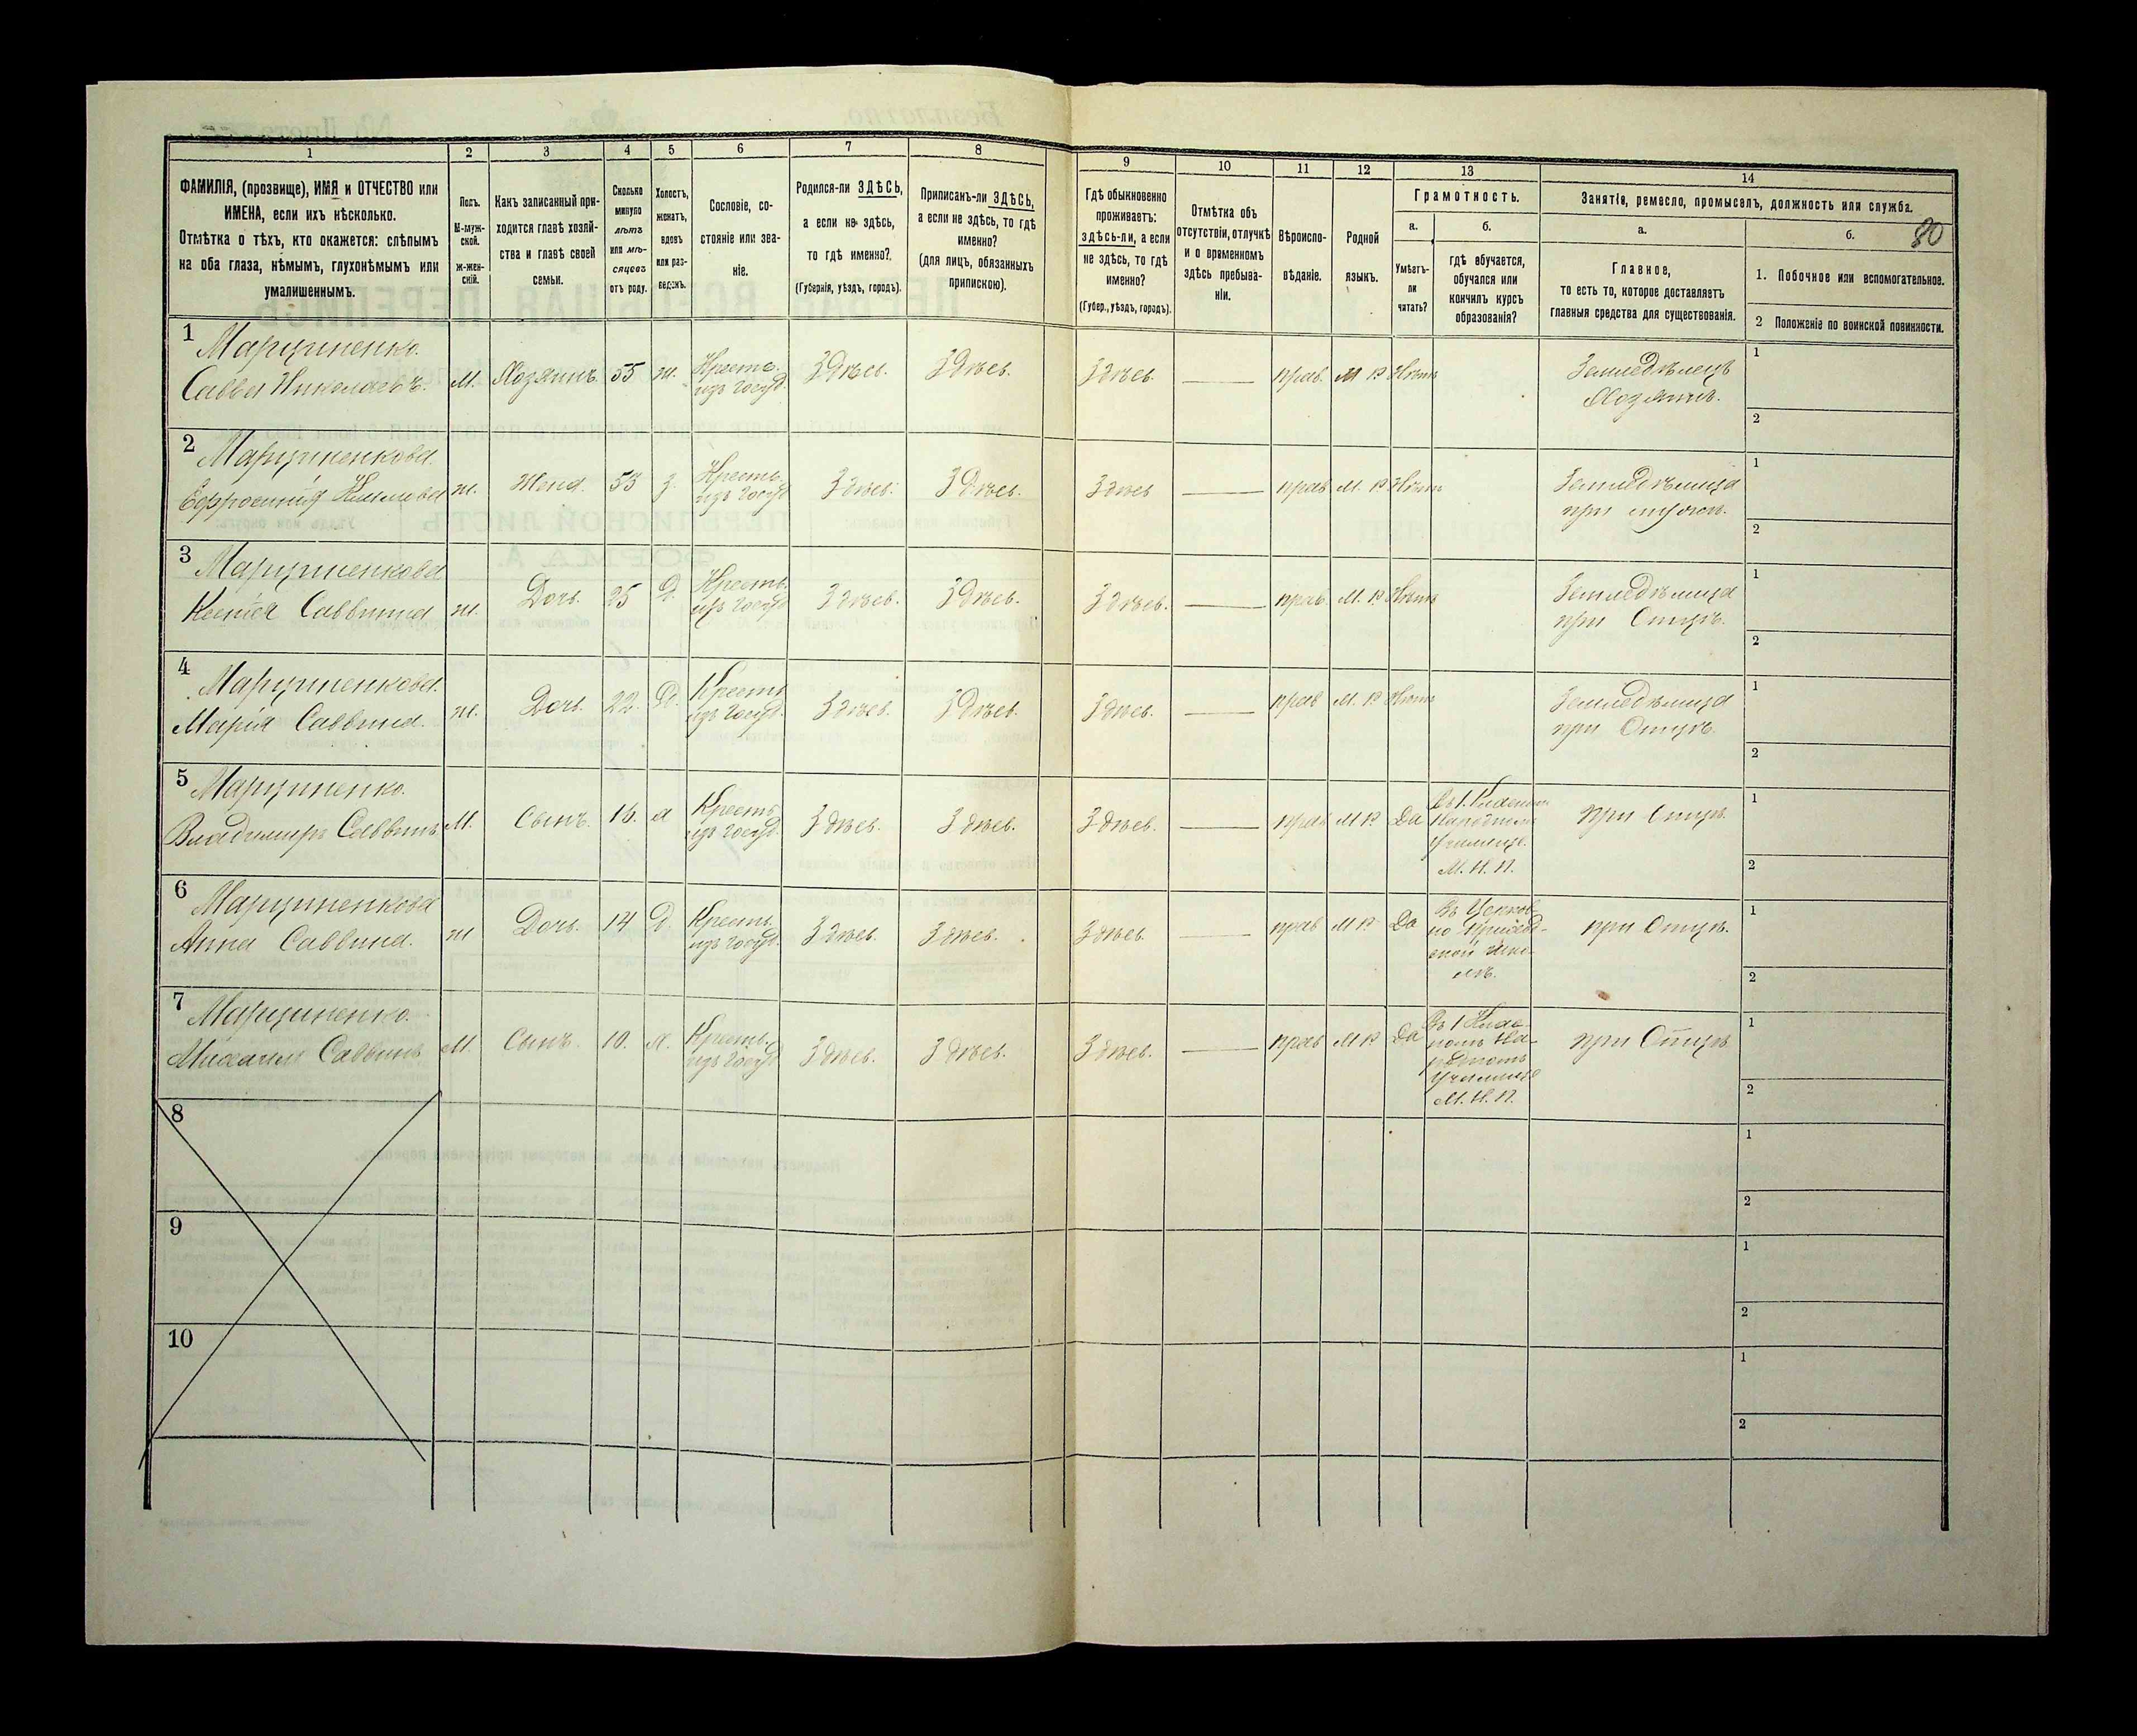 1 2 3 4 5 6 7 8 9 10 11 12 13 14
ФАМИЛІЯ, (прозвище), ИМЯ и ОТЧЕСТВО или
ИМЕНА, если ихъ нѣсколько.
Отмѣтка о тѣхъ, кто окажется: слѣпымъ
на оба глаза, нѣмымъ, глухонѣмымъ или
умалишеннымъ.
Полъ.
М-муж-
ской.
Ж-жен-
скій.
Какъ записанный при-
ходится главѣ хозяй-
ства и главѣ своей
семьи.
Сколько
минуло
лѣтъ
или мѣ-
сяцевъ
отъ роду.
Холостъ,
женатъ,
вдовъ
или раз-
веденъ.
Сословіе, со-
стояніе или зва-
ніе.
Родился-ли ЗДѢСЬ,
а если не здѣсь,
то гдѣ именно?
(Губернія, уѣздъ, городъ).
Приписанъ-ли ЗДѢСЬ,
а если не здѣсь, то гдѣ
именно?
(Для лицъ, обязанныхъ
припискою).
Гдѣ обыкновенно
проживаетъ:
здѣсь-ли, а если
не здѣсь, то гдѣ
именно?
(Губер., уѣздъ, городъ).
Отмѣтка объ
отсутствіи, отлучкѣ
и о временномъ
здѣсь пребыва-
ніи.
Вѣроиспо-
вѣданіе.
Родной
языкъ.
Грамотность.
а.
Умѣетъ-
ли
читать?
б.
гдѣ обучается,
обучался или
кончилъ курсъ
образованія?
Занятіе, ремесло, промыселъ, должность или служба.
а.
Главное,
то есть то, которое доставляетъ
главныя средства для существованія.
б.
80
1. Побочное или вспомогательное.
2 Положеніе по воинской повинности.
1 Марциненко.
Савва Николаевъ. М. Хозяинъ 55 ж. Крест. изъ госуд. Здѣсь. Здѣсь. Здѣсь. — прав. М Р Нѣтъ Земледѣлецъ Хозяинъ. 1 2
2 Марциненкова.
Ефросинія ж. Жена. 53 з. Крест. изъ госуд. Здѣсь. Здѣсь. Здѣсь — прав М. Р Нѣтъ Земледѣлица при мужѣ. 1 2
3 Марциненкова
Ксенія Саввина ж. Дочь. 25 Д. Крест. изъ госуд. Здѣсь. Здѣсь. Здѣсь. — прав. М. Р Нѣтъ Земледѣлица при Отцѣ. 1 2
4 Марциненкова.
Марія Саввина. ж. Дочь. 22. Д. Крест. изъ госуд. Здѣсь. Здѣсь. Здѣсь. — прав М. Р Нѣтъ Земледѣлица при Отцѣ. 1 2
5 Марциненко.
Владимиръ Саввинъ М. Сынъ. 16. х Крест. изъ госуд. Здѣсь. Здѣсь. Здѣсь. — прав М Р Да Въ 1 Класном Народном Училище. М. Н. П. при Отцѣ. 1 2
6 Марциненкова
Анна Саввина. ж Дочь. 14 Д. Крест. изъ госуд. Здѣсь. Здѣсь. Здѣсь. — прав М Р Да Въ Церков- но Приход- ской Шко- лѣ. при Отцѣ. 1 2
7 Марциненко.
Михаилъ Саввинъ М. Сынъ. 10. х. Крест. изъ госуд. Здѣсь. Здѣсь. Здѣсь. — прав М Р Да Въ 1 Клас- номъ На- родномъ Училище М. Н. П. при Отцѣ 1 2
8 1 2
9 1 2
10 1 2